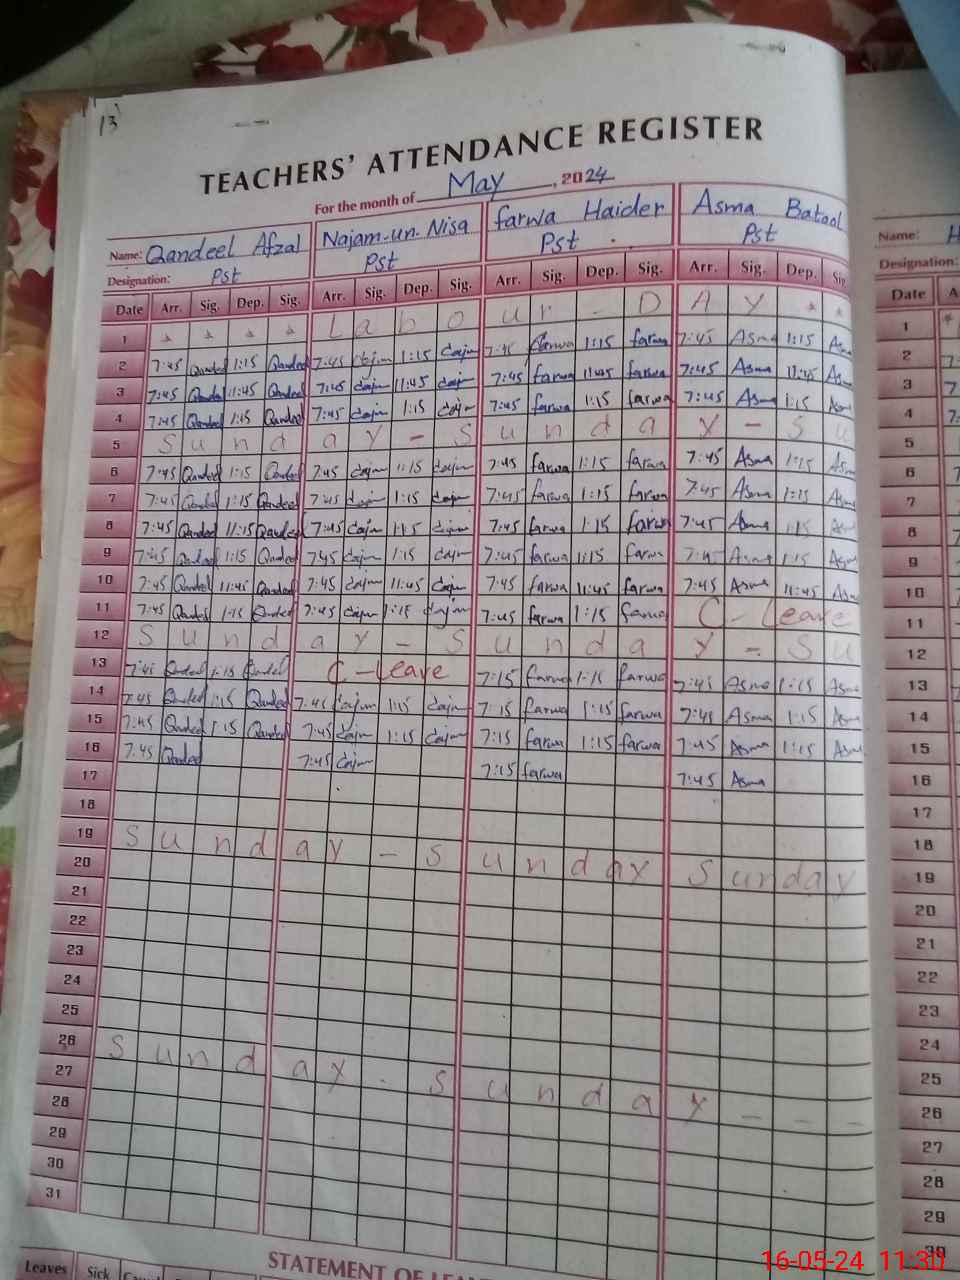 13
TEACHERS' ATTENDANCE REGISTER
For the month of May, 2024
Name: Qandeel Afzal Najam-un-Nisa farwa Haider Asma Batool Name: H
Designation: Pst Pst Pst Pst Designation:
Date Arr. Sig. Dep. Sig. Arr. Sig. Dep. Sig. Arr. Sig. Dep. Sig. Arr. Sig. Dep. Sig Date A
1 * * * * L a b o u r - D A y * * 1
2 7:45 Qandeel 1:15 Qandeel 7:45 1:15 7:45 farwa 1:15 farwa 7:45 Asma 1:15 Asm 2
3 7:45 Qandeel 11:45 Qandeel 7:45 11:45 7:45 farwa 11:45 farwa 7:45 Asma 11:45 Asm 3
4 7:45 Qandeel 1:15 Qandeel 7:45 1:15 7:45 farwa 1:15 farwa 7:45 Asma 1:15 Asm 4
5 S u n d a y - S u n d a y - S u 5
6 7:45 Qandeel 1:15 Qandeel 7:45 1:15 7:45 farwa 1:15 farwa 7:45 Asma 1:15 Asm 6
7 7:45 Qandeel 1:15 Qandeel 7:45 1:15 7:45 farwa 1:15 farwa 7:45 Asma 1:15 Asm 7
8 7:45 Qandeel 1:15 Qandeel 7:45 1:15 7:45 farwa 1:15 farwa 7:45 Asma 1:15 Asm 8
9 7:45 Qandeel 1:15 Qandeel 7:45 1:15 7:45 farwa 1:15 farwa 7:45 Asma 1:15 Asm 9
10 7:45 Qandeel 11:45 Qandeel 7:45 11:45 7:45 farwa 11:45 farwa 7:45 Asma 11:45 Asm 10
11 7:45 Qandeel 1:15 Qandeel 7:45 1:15 7:45 farwa 1:15 farwa C - Leave 11
12 S u n d a y - S u n d a y - S u 12
13 7:45 Qandeel 1:15 Qandeel C - Leave 7:15 farwa 1:15 farwa 7:45 Asma 1:15 Asm 13
14 7:45 Qandeel 1:15 Qandeel 7:45 1:15 7:15 farwa 1:15 farwa 7:45 Asma 1:15 Asm 14
15 7:45 Qandeel 1:15 Qandeel 7:45 1:15 7:15 farwa 1:15 farwa 7:45 Asma 1:15 Asm 15
16 7:45 Qandeel 7:45 7:15 farwa 7:45 Asma 16
17 17
18 18
19 S u n d a y - S u n d a y S u n d a y 19
20 20
21 21
22 22
23 23
24 24
25 25
26 S u n d a y - S u n d a y - - - 26
27 27
28 28
29 29
30 30
31
STATEMENT OF LEA
Leaves Sick
16-05-24 11:30